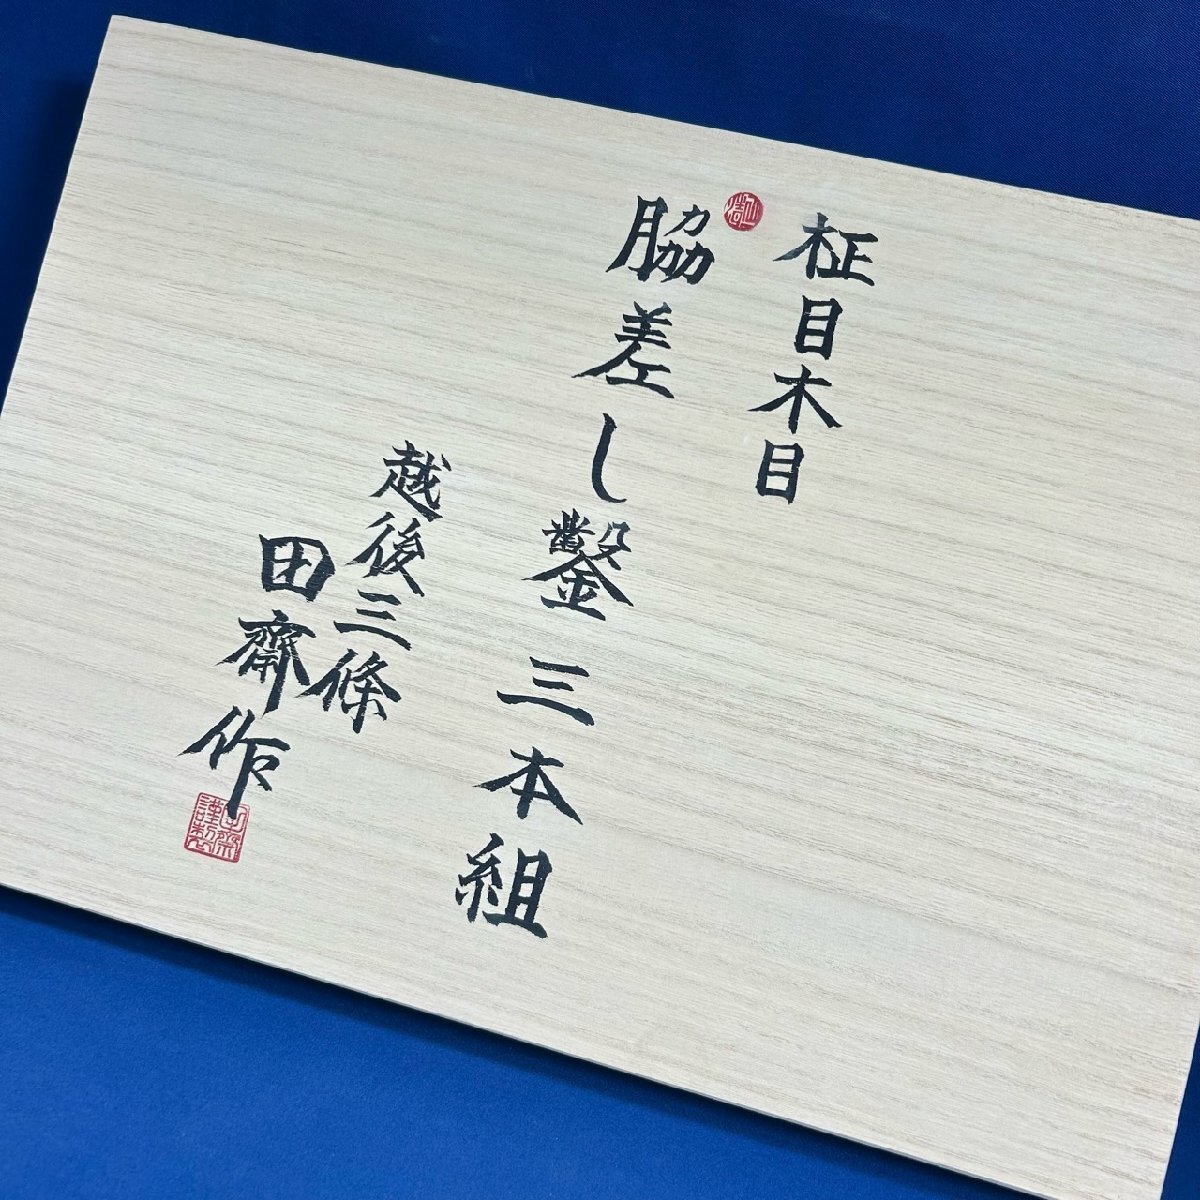 柾目木目
脇差し鑿 三本組
越後三條
田齋作
田齋
謹製